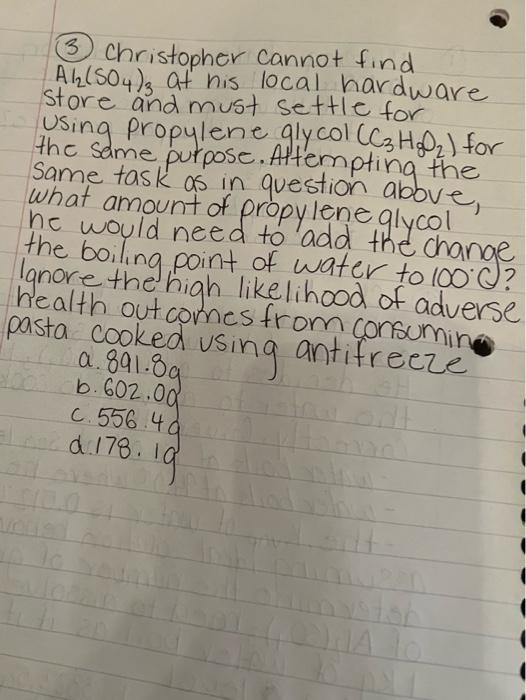 ③ Christopher cannot find
Al2(SO4)3 at his local hardware
store and must settle for
using propylene glycol (C3H8O2) for
the same purpose. Attempting the
same task as in question above,
what amount of propylene glycol
he would need to add the change
the boiling point of water to 100°C?
Ignore the high likelihood of adverse
health outcomes from consuming
pasta cooked using antifreeze
a. 891.8g
b. 602.0g
c. 556.4g
d. 178.1g